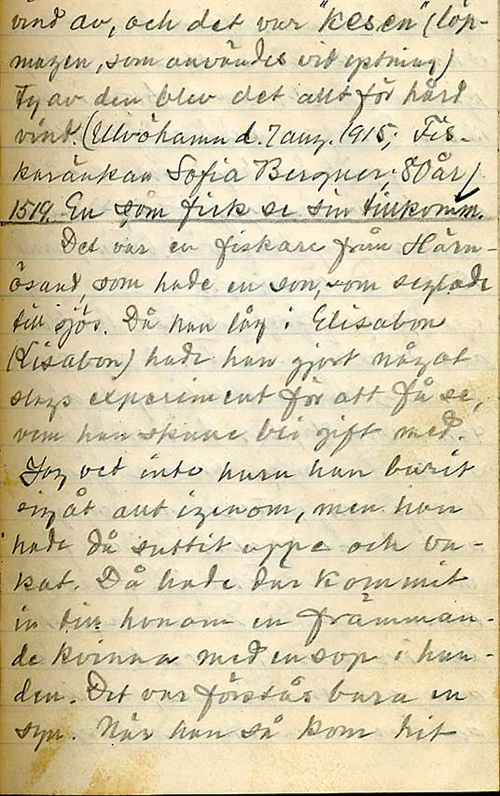 vind av, och det var "kesen" (löp-
magen, som användes vid ystning)
Ty av den blev det allt för hård
vind. (Ulvöhamn d. 7 aug. 1915; Fis-
karänkan Sofia Bergner. 80 år)
1519. En som fick se sin tillkomm.
Det var en fiskare från Härn-
ösand, som hade en son, som seglade
till sjös. Då han låg i Elisabon
(Lisabon) hade han gjort något
slags experiment för att få se,
vem han skulle bli gift med.
Jag vet inte huru han burit
sig åt allt igenom, men han
hade då suttit uppe och va-
kat. Då hade där kommit
in till honom en främman-
de kvinna med en sop i han-
den. Det var förstås bara en
syn. När han så kom hit